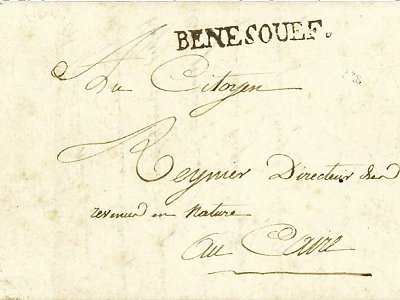 BENESOUEF.
Au Citoyen
Reynier Directeur des
revenus en Nature
au Caire